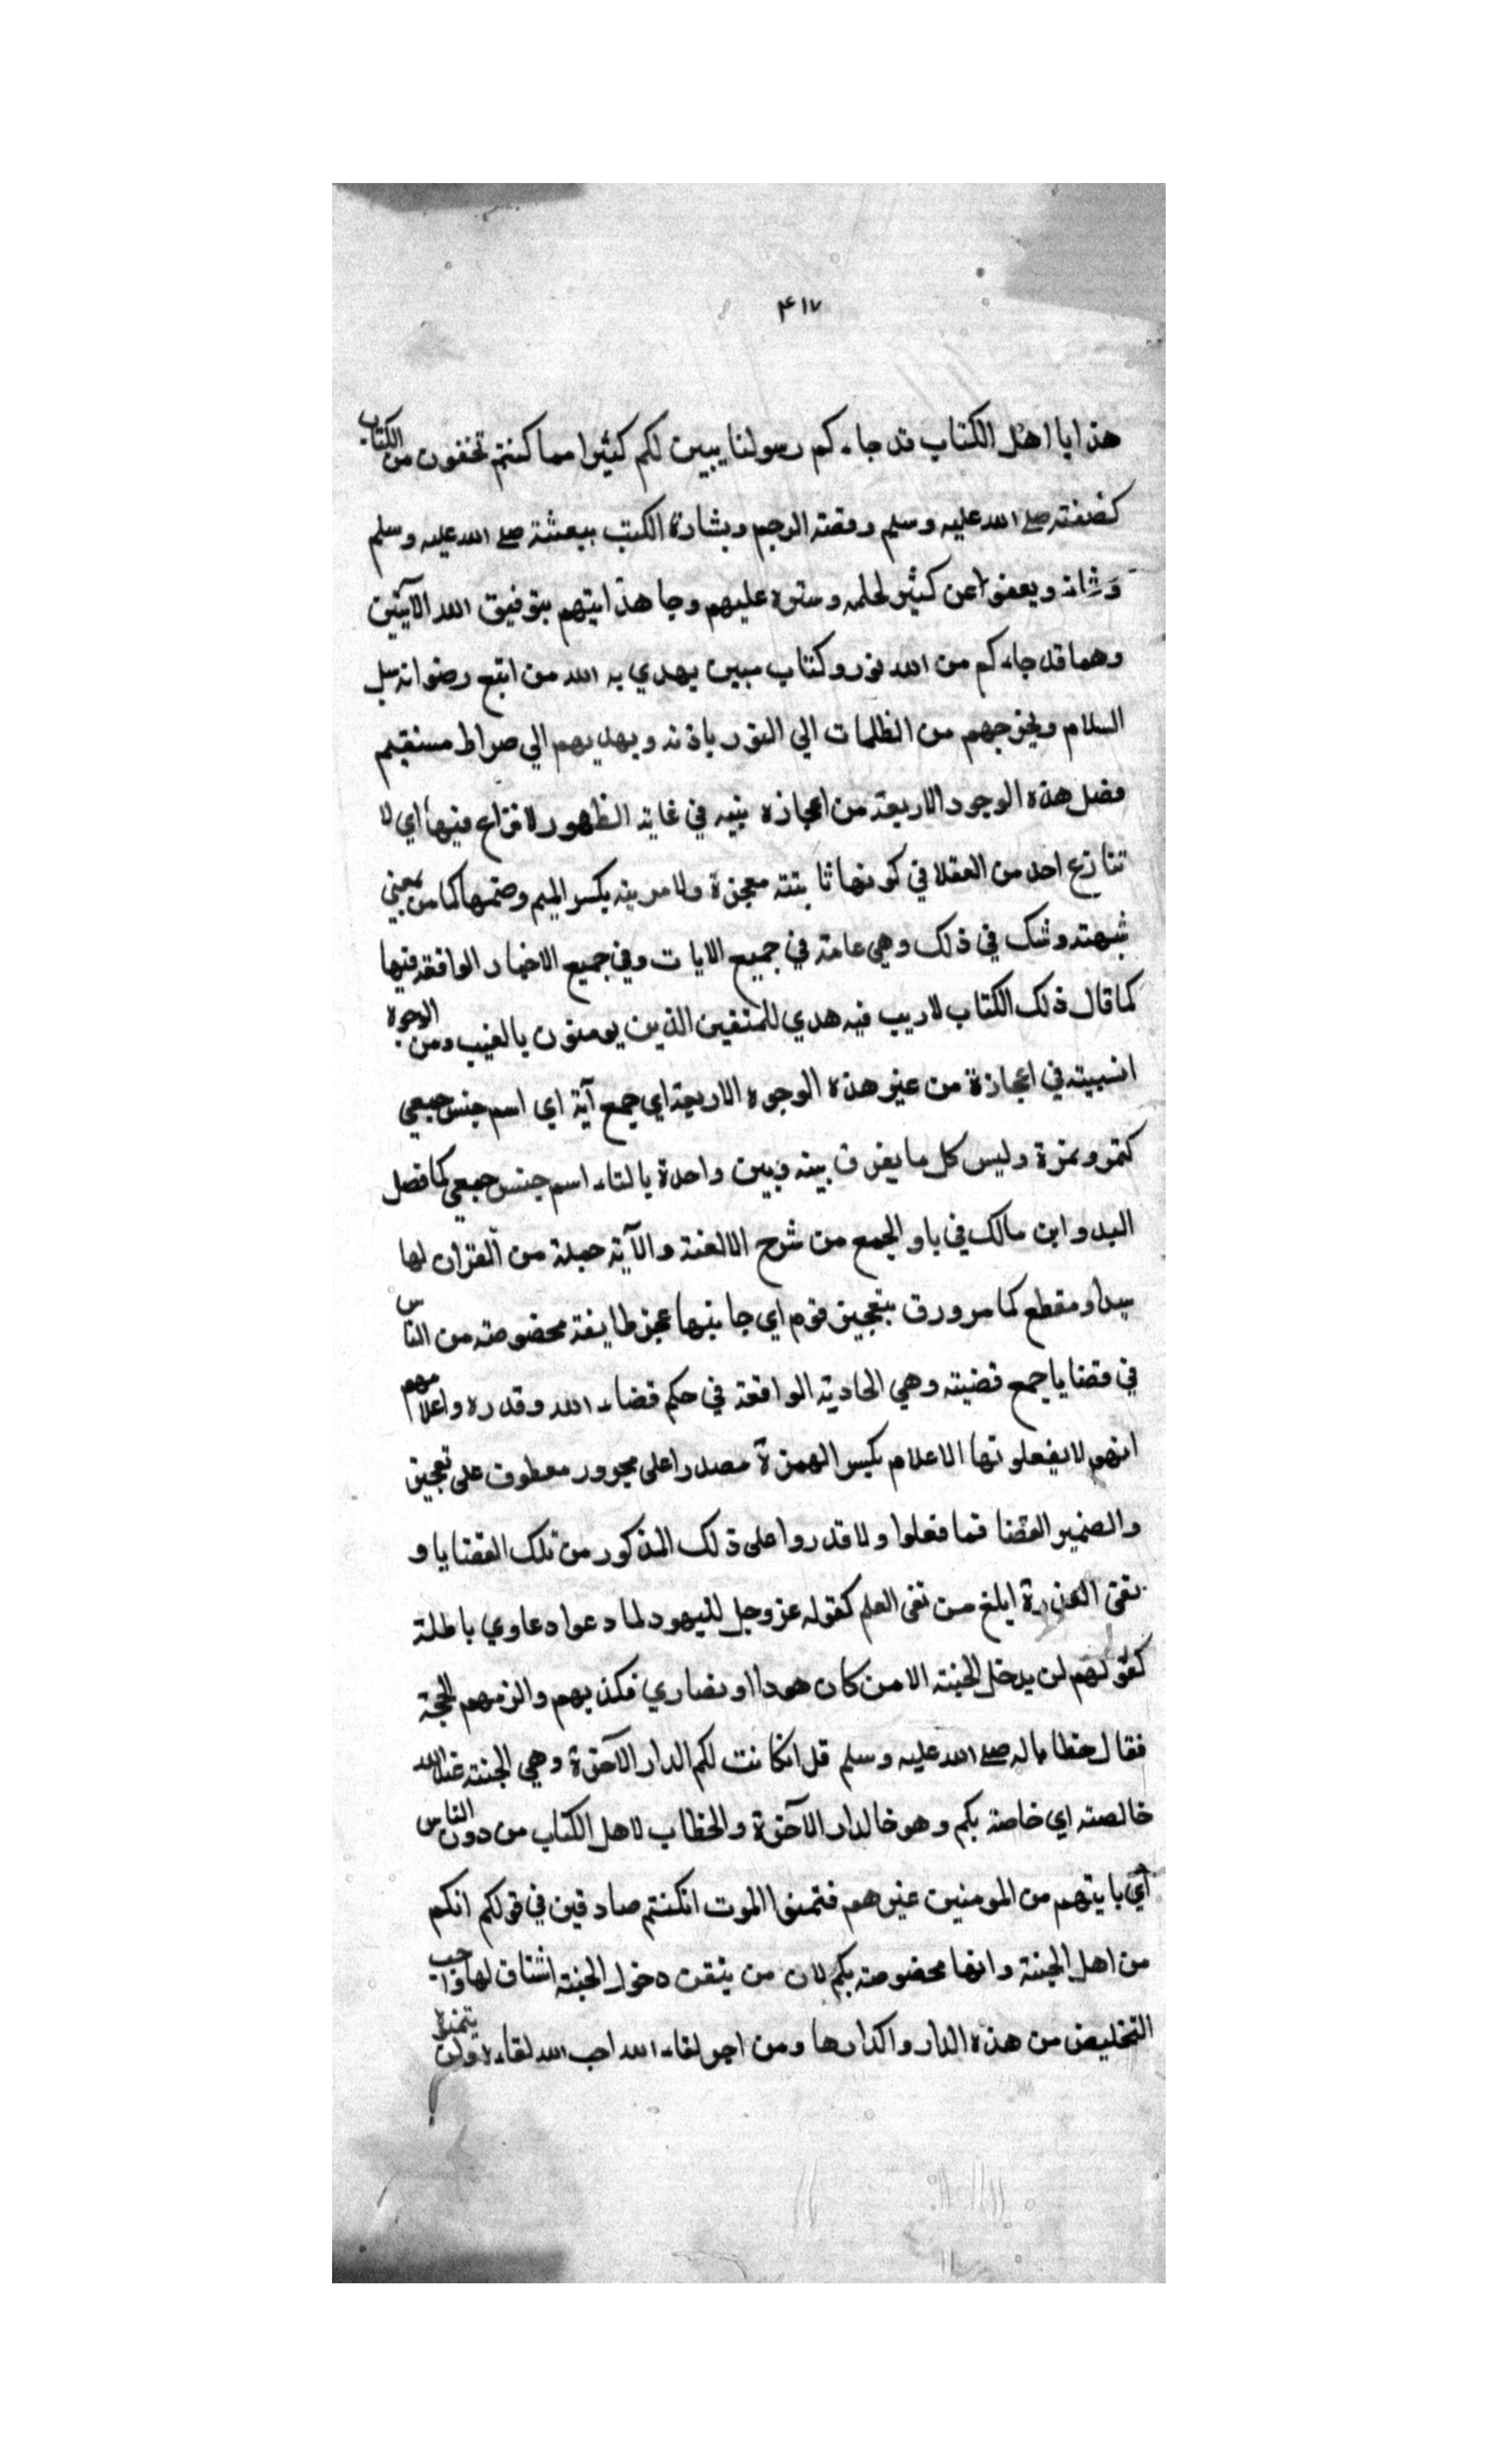 ٤١٧
هذا يا اهل الكتاب قد جاءكم رسولنا يبين لكم كثيرا مما كنتم تخفون من الكتاب
كصفته صلے الله عليه وسلم وقصة الرجم وبشارة الكتب ببعثة صلے الله عليه وسلم
وشانه ويعفوا عن كثير لحلمه وستره عليهم وجا هذايتهم بتوفيق الله الآيتين
وهما قد جاءكم من الله نور وكتاب مبين يهدي به الله من اتبع رضوانه سبل
السلام ويخرجهم من الظلمات الي النور باذنه ويهديهم الي صراط مستقيم
فصل هذه الوجوه الاربعة من اعجازه بينه في غاية الظهور لا نزاع فيها اي لا
تنازع احد من العقلا في كونها ثابتة معجزة ولا مرية بكسر الميم وضمها كما من بمعني
شبهة وشك في ذلك وهي عامة في جميع الايات وفي جميع الاخبار الواقعة فيها
كما قال ذلك الكتاب لاريب فيه هدي للمتقين الذين يومنون بالغيب ومن الوجوه
انسبيته في اعجازة من غير هذه الوجوه الاربعة اي جمع آية اي اسم جنس جمعي
كتمر وتمرة وليس كل ما يفرق بينه وبين واحدة بالتاء اسم جنس جمعي كما فصل
البدو ابن مالك في باو الجمع من شرح الالفية والآية جملة من القرآن لها
مبدا ومقطع كما مر ورق بتعجيز قوم اي جا بنها عجز طايفة مخصوصة من الناس
في قضايا جمع قضيته وهي الحادثة الواقعة في حكم قضاء الله وقدره واعلامهم
انهم لا يفعلونها الاعلام بكسر الهمزة مصدرا علي مجرور معطوف على تعجيز
والضمير القضا فما فعلوا ولا قدروا على ذلك المذكور من تلك القضايا و
نفى القدرة ابلغ من نفى العلم كقوله عز وجل لليهود لما دعوا دعاوي باطلة
كقولهم لن يدخل الجنة الا من كان هودا او نصاري فكذبهم والزمهم الحجة
فقال خطابا له صلے الله عليه وسلم قل انكانت لكم الدار الآخرة وهي الجنة عند الله
خالصة اي خاصة بكم وهو خا لدار الآخرة والخطاب لاهل الكتاب من دون الناس
اي با يتهم من المومنين غيرهم فتمنوا الموت انكنتم صادقين في قولكم انكم
من اهل الجنة وانها مخصوصة بكم لان من يتقن دخول الجنة اشتاق لها واحب
التخليص من هذه الدار واكدارها ومن احب لقاء الله احب الله لقاءه ولن يتمنوه